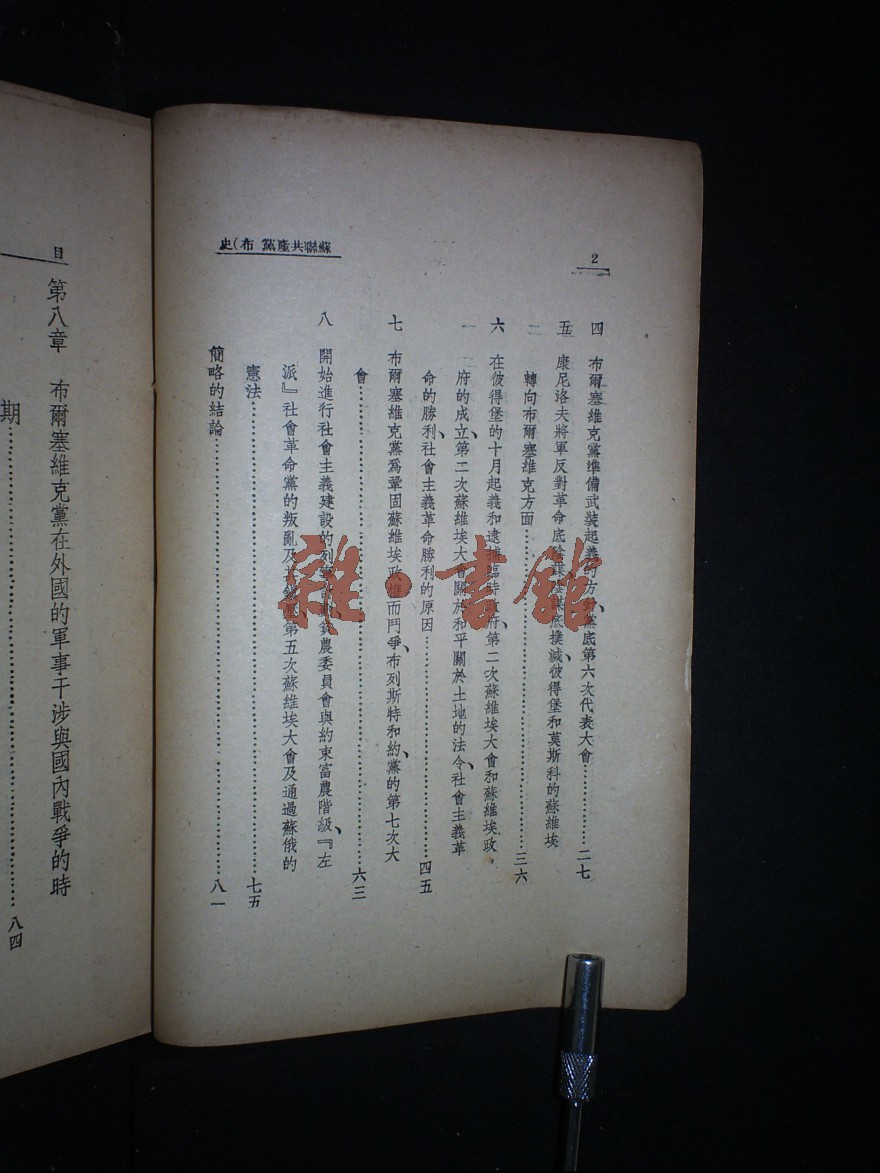 2
蘇聯共產黨 布(史
四 布爾塞維克黨準備武裝起義的方針、黨底第六次代表大會……………二七
五 康尼洛夫將軍反對革命底陰謀、陰謀底撲滅、彼得堡和莫斯科的蘇維埃
二 轉向布爾塞維克方面……………三六
六 在彼得堡的十月起義和逮捕臨時政府、第二次蘇維埃大會和蘇維埃政、
一 二 府的成立、第二次蘇維埃大會關於和平關於土地的法令、社會主義革
命的勝利、社會主義革命勝利的原因……………四五
七 布爾塞維克黨爲鞏固蘇維埃政權而鬥爭、布列斯特和約、黨的第七次大
會……………六三
八 開始進行社會主義建設的列寧 貧農委員會與約束富農階級、『左
派』社會革命黨的叛亂及其 、第五次蘇維埃大會及通過蘇俄的
憲法……………七五
簡略的結論……………八一
目
第八章 布爾塞維克黨在外國的軍事干涉與國內戰爭的時
期……………八四
雜·書館